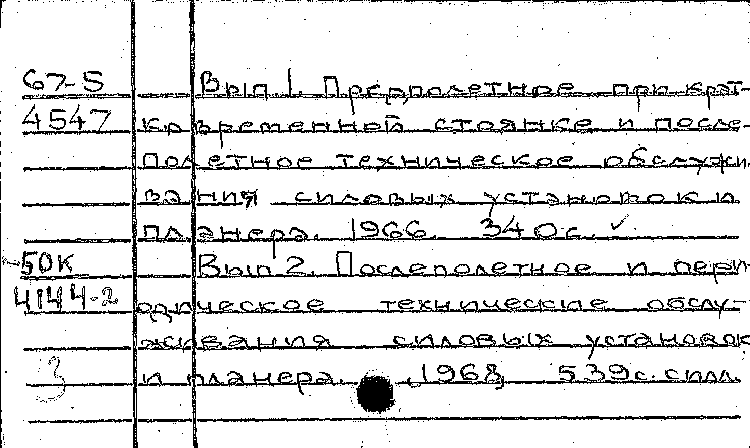 67-5 Вып 1. Предполетное при крат-
4547 ковременной стоянке и после-
полетное техническое обслужи
вания силовых установок и
планера. 1966. 340 с. ✓
50К Вып 2. Послеполетное и пери
4144-2 одическое технические обслу-
живания силовых установок
3 и планера. 1968 539 с. с илл.